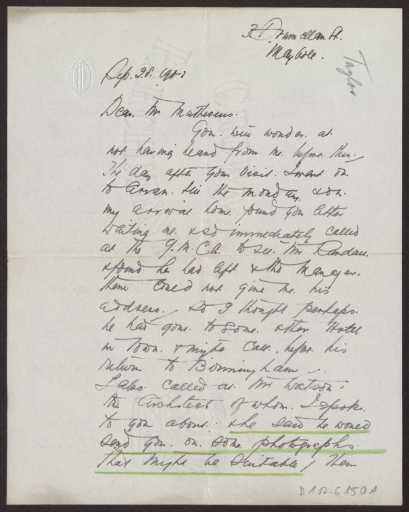 Drumellan St.
Maybole.
Taylor
Sep. 28.
Dear Mr Mathewes.
You will wonder at
not having heard from me before this.
The day after your visit. I went on
to Arran. till the Monday & on
my arrival home found your letter
waiting me. & so immediately called
at the Y.M.C.A. to see. Mr Randau.
& found he had left & the Manager.
there could not give me his
address. So I thought perhaps
he had gone to some other Hotel
in town. & might call before his
return to Birmingham.
I also called at Mr Watson's
the Architect of whom I spoke
to you about. & he said he would
send you on some photographs
that might be suitable, them